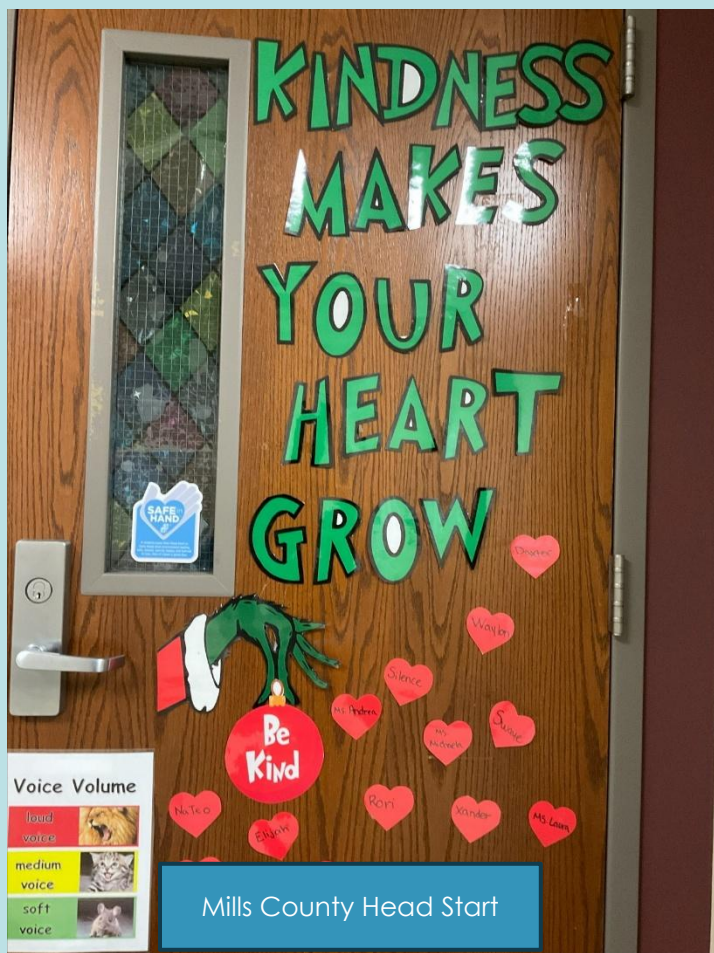 KINDNESS
MAKES
YOUR
HEART
GROW
SAFE in
HAND
Waylon
Silence
Ms. Andrea
Susie
Ms.
Be
Kind
NaTeo
Elijah
Rori
Xander
Ms. Laura
Voice Volume
loud
voice
medium
voice
soft
voice
Mills County Head Start